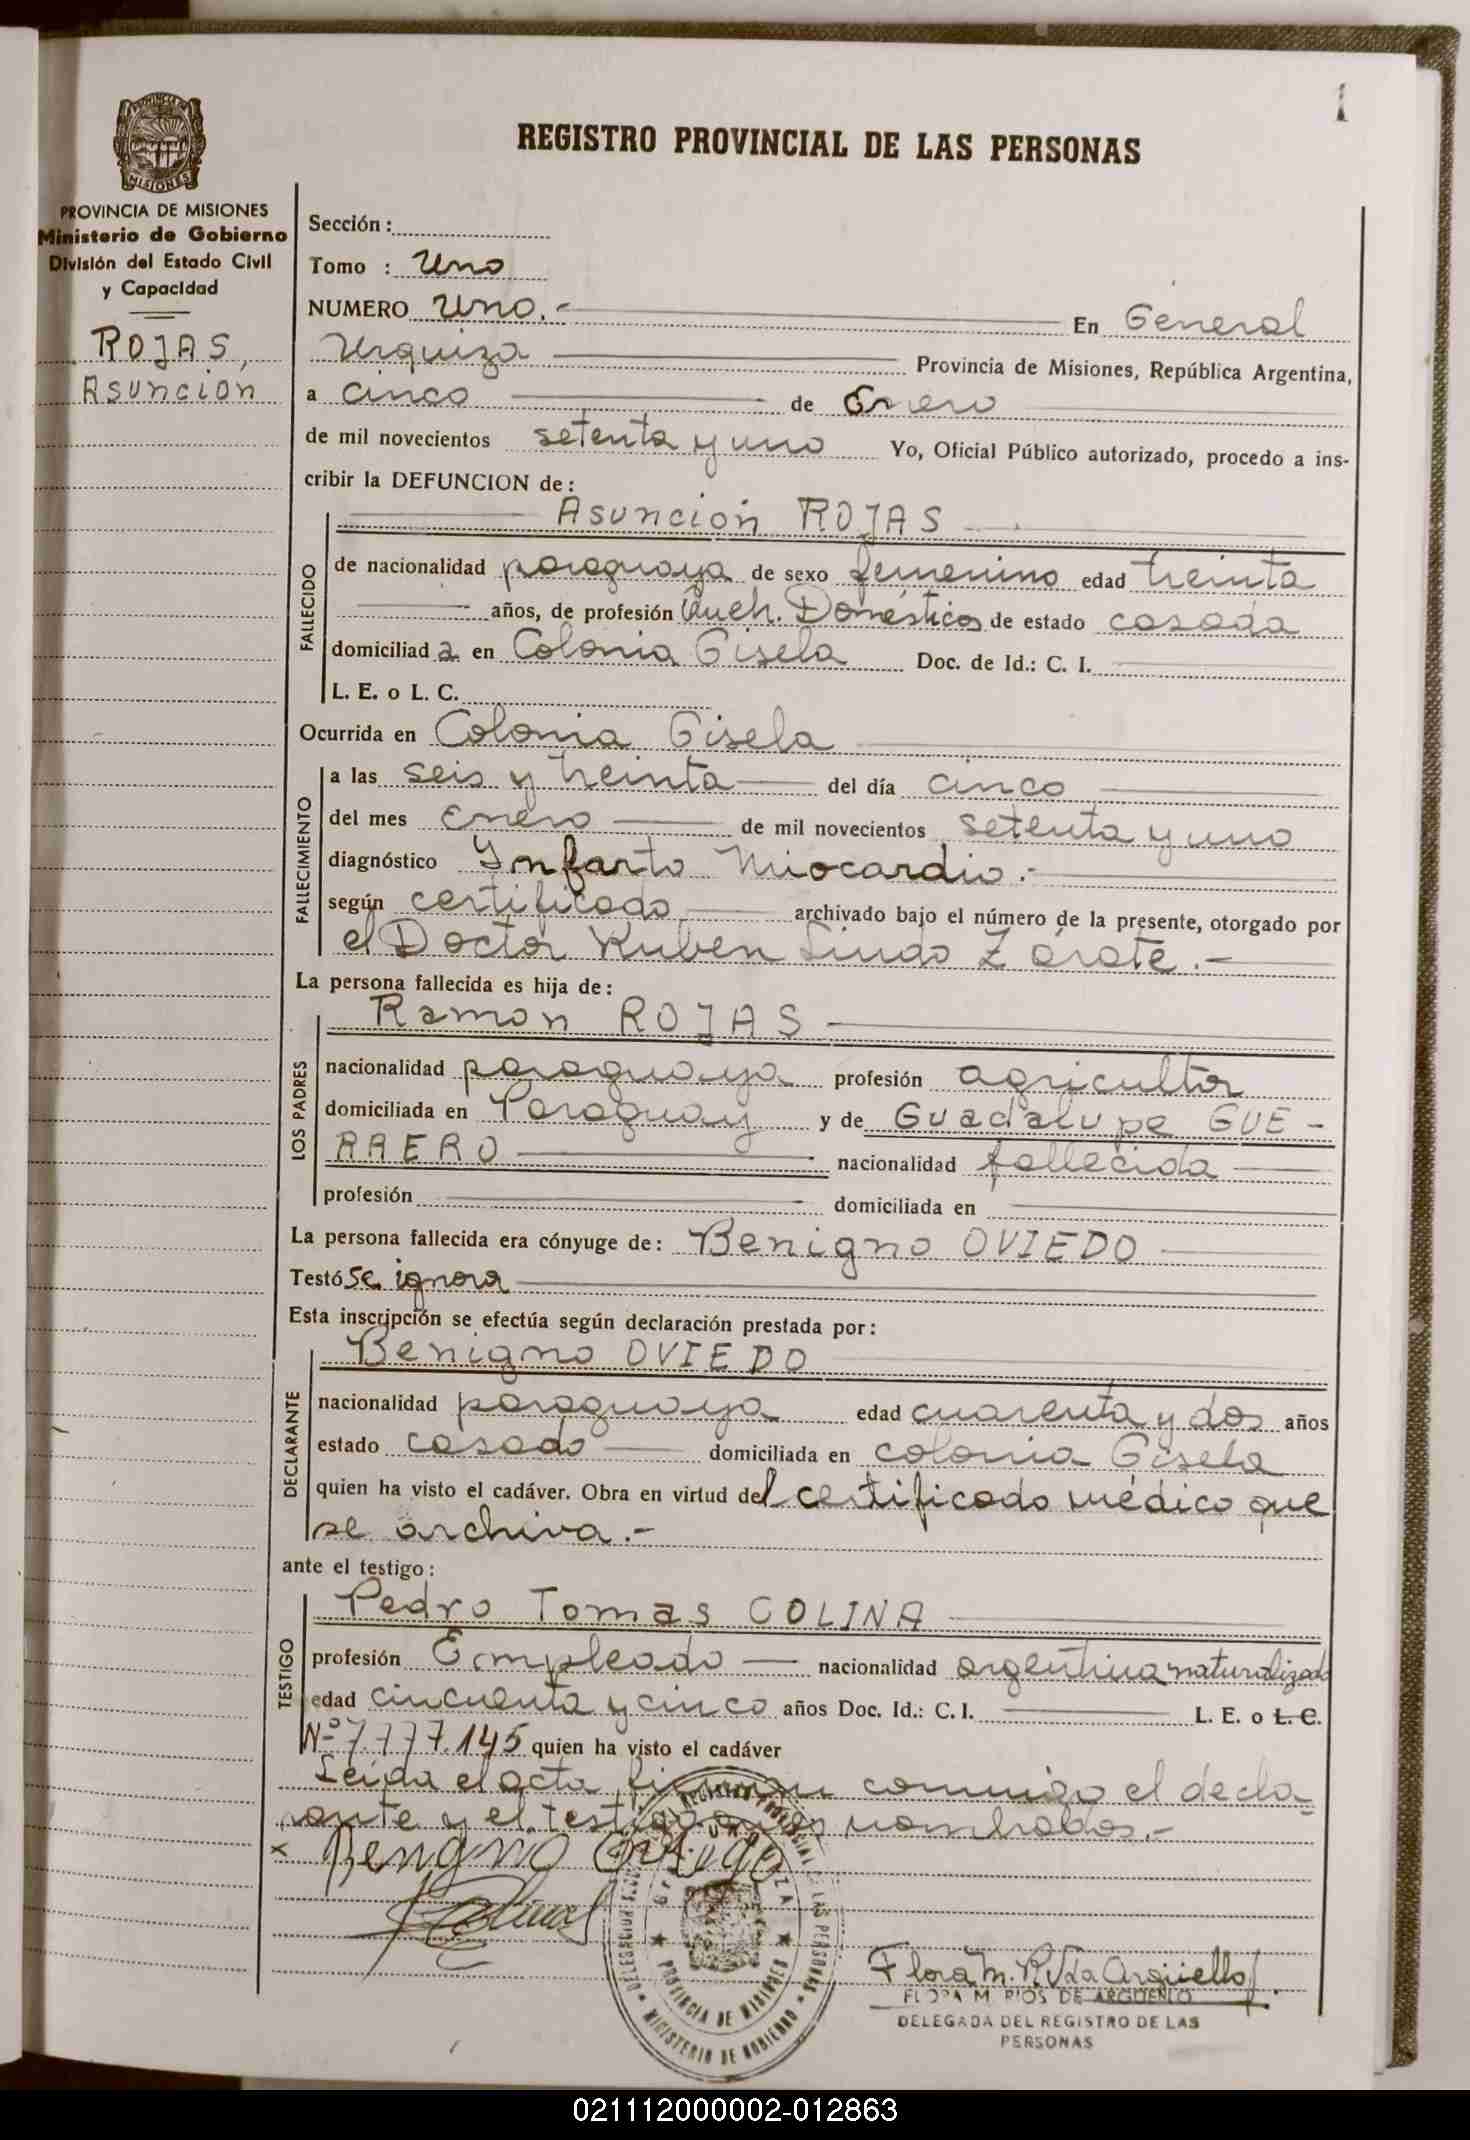 1
REGISTRO PROVINCIAL DE LAS PERSONAS
PROVINCIA DE MISIONES
Ministerio de Gobierno
División del Estado Civil
y Capacidad
ROJAS,
Asuncion
Sección:
Tomo : Uno
NUMERO Uno.- En General
Urquiza Provincia de Misiones, República Argentina,
a cinco de Enero
de mil novecientos setenta y uno Yo, Oficial Público autorizado, procedo a ins-
cribir la DEFUNCION de:
Asunción ROJAS
FALLECIDO
de nacionalidad paraguaya de sexo femenino edad treinta
años, de profesión Queh. Domésticos de estado casada
domiciliada en Colonia Gisela Doc. de Id.: C. I.
L. E. o L. C.
Ocurrida en Colonia Gisela
FALLECIMIENTO
a las seis y treinta del día cinco
del mes enero de mil novecientos setenta y uno
diagnóstico Infarto Miocardio.-
según certificado archivado bajo el número de la presente, otorgado por
el Doctor Ruben Zárate.-
La persona fallecida es hija de:
Ramon ROJAS
LOS PADRES
nacionalidad paraguaya profesión agricultor
domiciliada en Paraguay y de Guadalupe GUE-
RRERO nacionalidad fallecida
profesión domiciliada en
La persona fallecida era cónyuge de: Benigno OVIEDO
Testó se ignora
Esta inscripción se efectúa según declaración prestada por:
Benigno OVIEDO
DECLARANTE
nacionalidad paraguaya edad cuarenta y dos años
estado casado domiciliada en colonia Gisela
quien ha visto el cadáver. Obra en virtud del certificado médico que
se archiva.-
ante el testigo:
Pedro Tomas COLINA
TESTIGO
profesión Empleado nacionalidad argentina naturalizado
edad cincuenta y cinco años Doc. Id.: C. I. L. E. o L. C.
Nº 7.777.145 quien ha visto el cadáver
Leida el acta firman conmigo el decla
rante y el testigo nombrados.-
x Benigno Oviedo
Flora M. R. de Argüello
FLORA M. RIOS DE ARGÜELLO
DELEGADA DEL REGISTRO DE LAS
PERSONAS
PROVINCIA DE MISIONES
MINISTERIO DE GOBIERNO
021112000002-012863